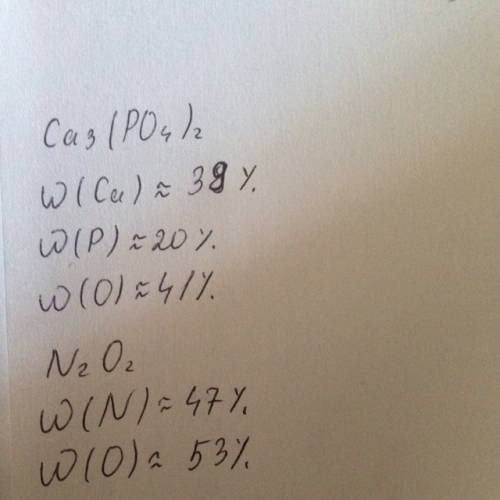 Ca₃(PO₄)₂
W(Ca) ≈ 39%.
W(P) ≈ 20%.
W(O) ≈ 41%.
N₂O₂
W(N) ≈ 47%.
W(O) ≈ 53%.